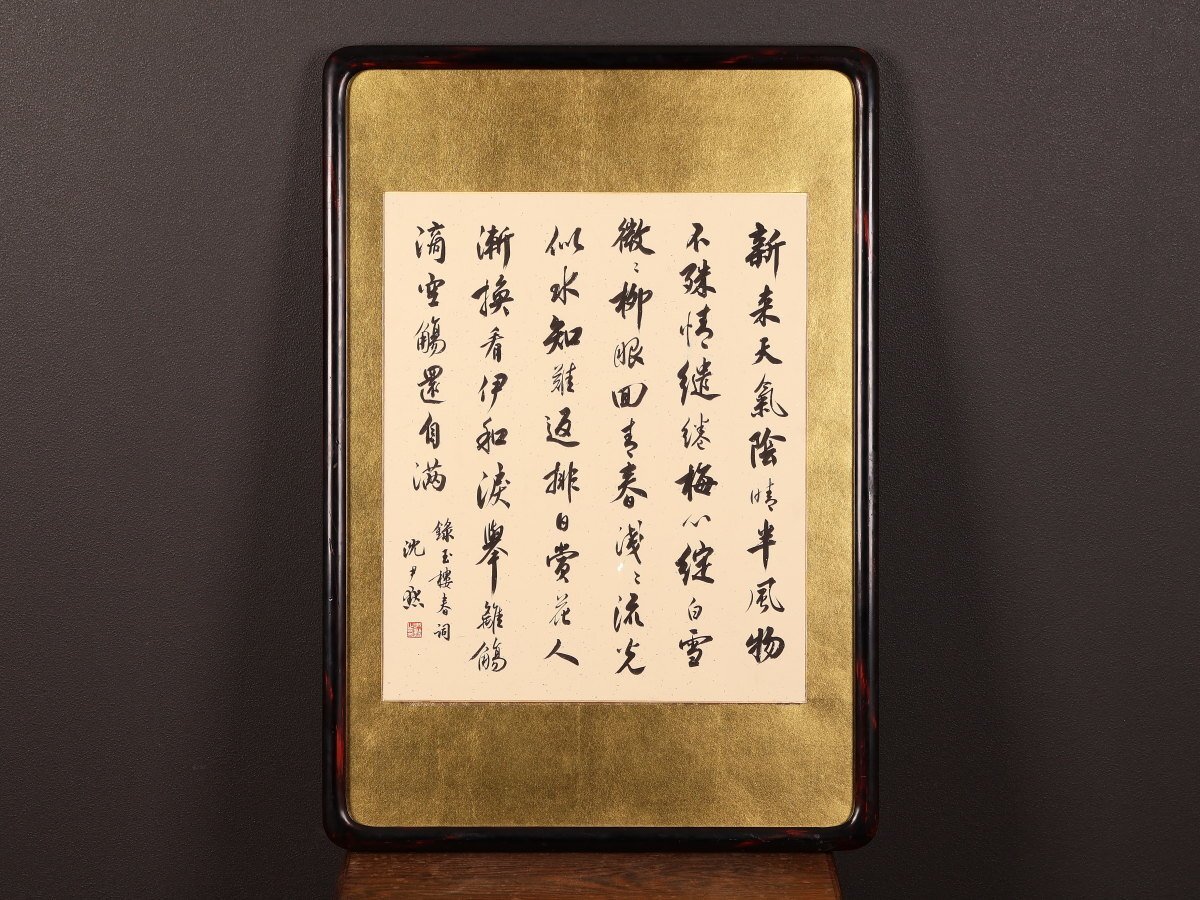 新来天氣陰晴半風物
不殊情繾綣梅心綻白雪
微〻柳眼回青春淺〻流光
似水知難返排日賞花人
漸換看伊和淚舉離觴
滴空觴還自滿
錄玉樓春詞
沈尹默